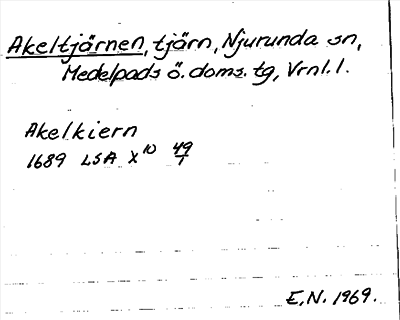 Akeltjärnen, tjärn, Njurunda sn,
Medelpads ö. doms. tg, Vrnl. l.
Akelkiern
1689 LSA X10 49/1
E.N. 1969.